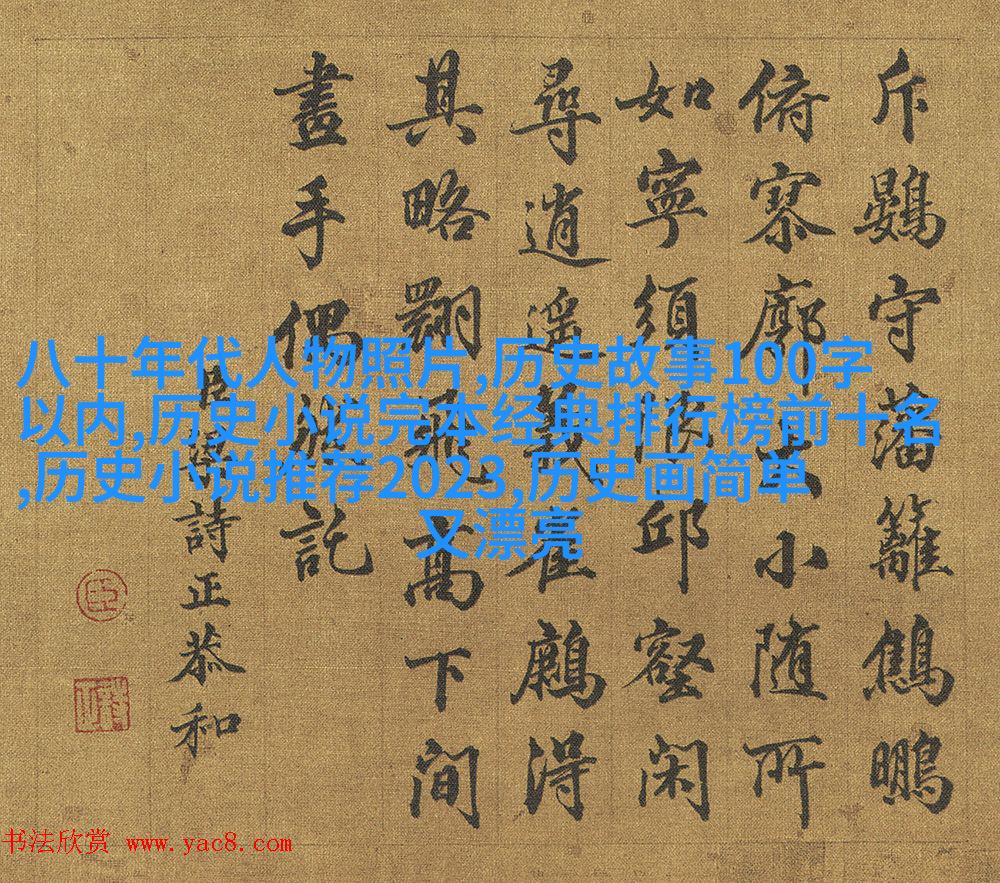 斥鷃守藩籬鷦鵬
俯寥廓大小随所
如寧須限邱壑閑
尋逍遥義崔得
其略翾飛高下間
畫手偶託
臣梁詩正恭和
八十年代人物照片,历史故事100字
以内,历史小说完本经典排行榜前十名
,历史小说推荐2023,历史画简单
又漂亮
书法欣赏 www.yac8.com